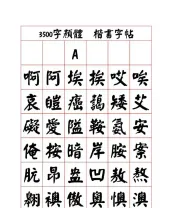 3500字顏體 楷書字帖
A
啊阿埃挨哎唉
哀皚癌藹矮艾
礙愛隘鞍氨安
俺按暗岸胺案
骯昂盎凹敖熬
翱襖傲奧懊澳